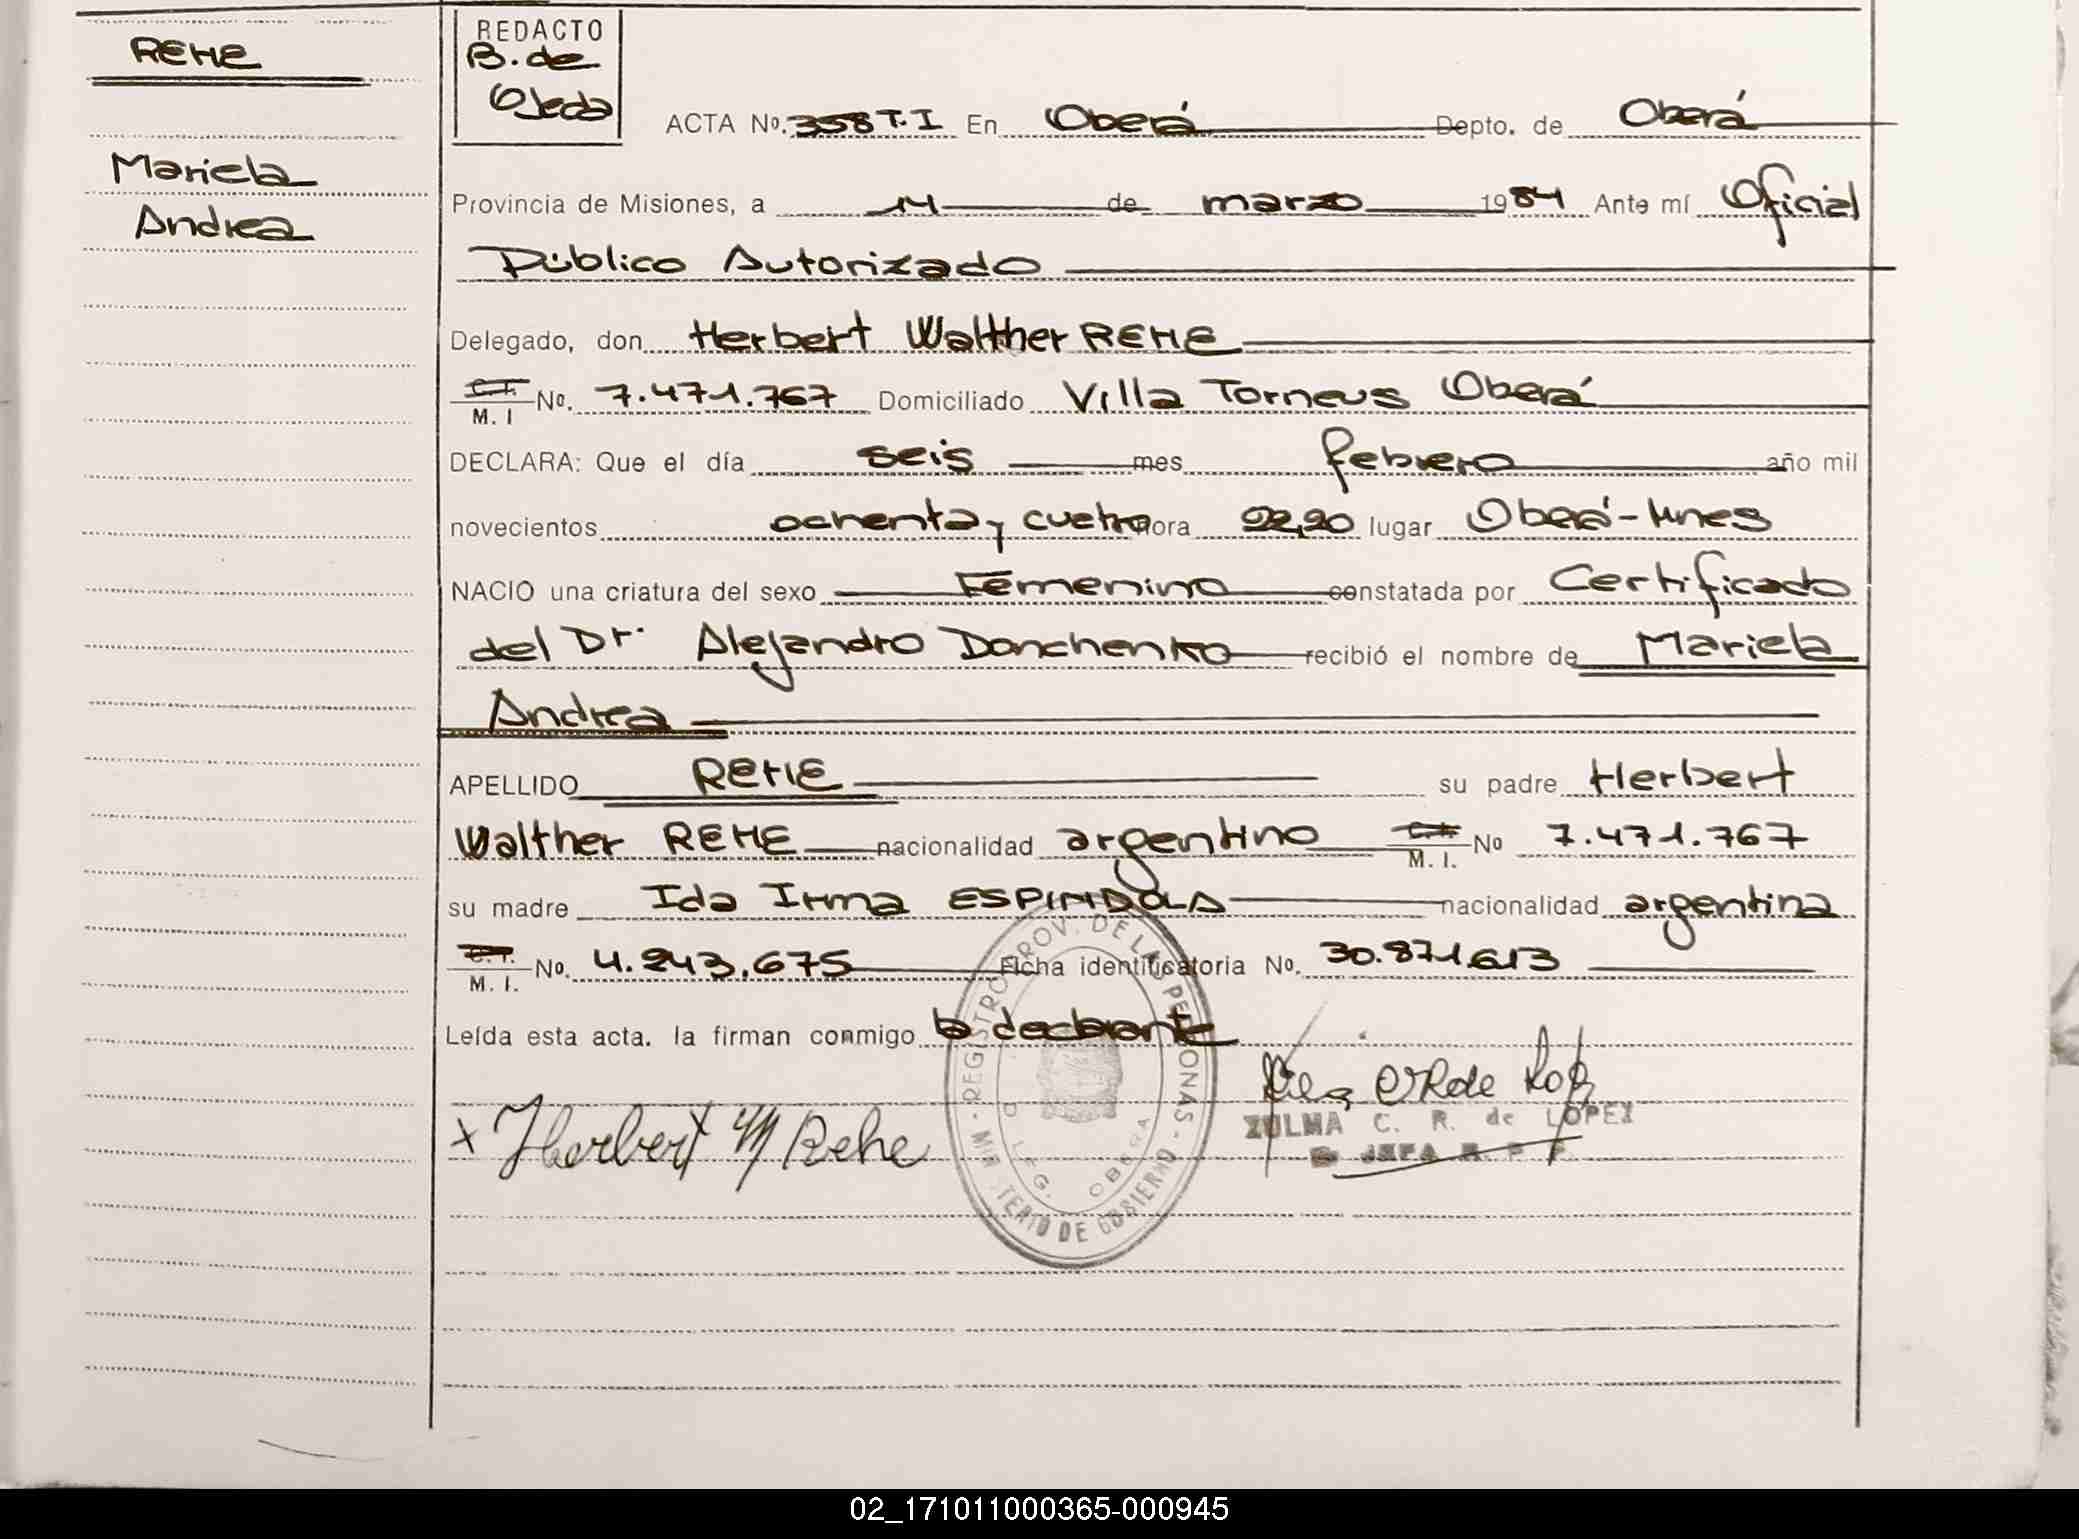 REHE
Mariela
Andrea
REDACTO
B. de
Ojeda
ACTA No. 358 T.I En Oberá Depto. de Oberá
Provincia de Misiones, a 14 de marzo 1984 Ante mí Oficial
Público Autorizado
Delegado, don Herbert Walther REHE
C.I. M. I No. 7.471.767 Domiciliado Villa Torneus Oberá
DECLARA: Que el día seis mes febrero año mil
novecientos ochenta y cuatro hora 22,20 lugar Oberá-Mnes
NACIO una criatura del sexo Femenino constatada por Certificado
del Dr. Alejandro Donchenko recibió el nombre de Mariela
Andrea
APELLIDO REHE su padre Herbert
Walther REHE nacionalidad argentino C.I. M. I. No 7.471.767
su madre Ida Irma ESPINDOLA nacionalidad argentina
C.I. M. I. No. 4.243.675 Ficha identificatoria No. 30.871.613
Leída esta acta. la firman conmigo la declarante
x Herbert W Rehe
ZULMA C. R. de LOPEZ
JEFA R. P. P.
REGISTRO PROV. DE LAS PERSONAS - MINISTERIO DE GOBIERNO -
DELEG. OBERA
02_171011000365-000945